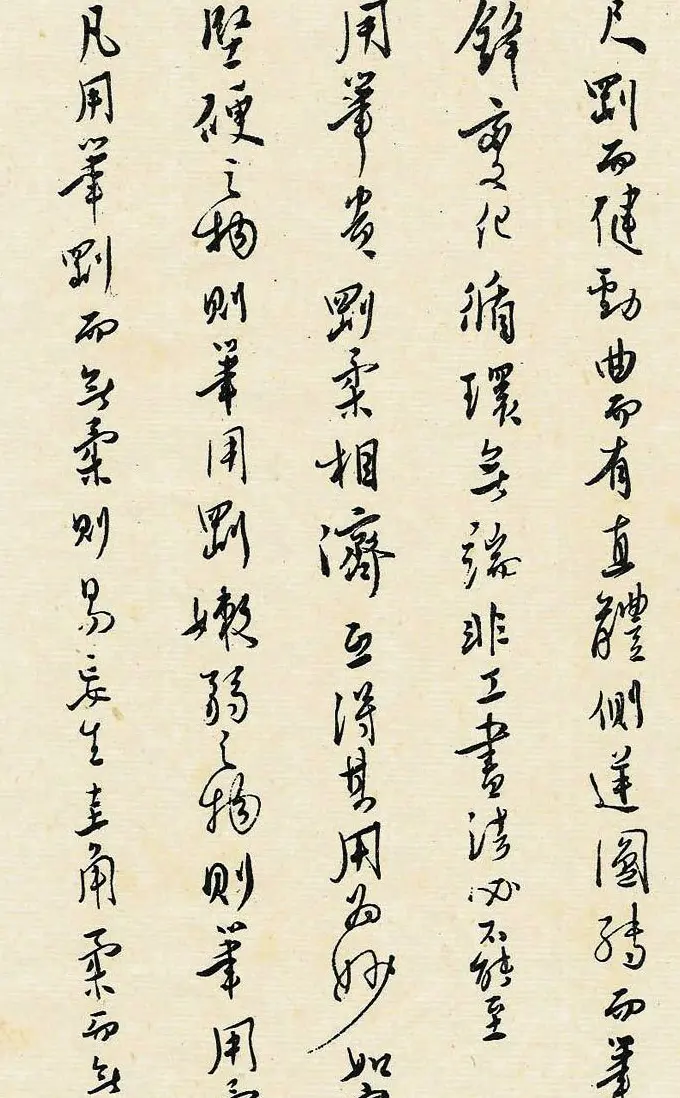 尺剛而健動曲而有直體側逆圓轉而筆
鋒變化循環無端非工書法必不能至
用筆貴剛柔相濟互得其用為妙如
堅硬之物則筆用剛嫩弱之物則筆用
凡用筆剛而無柔則易妄生圭角柔而無